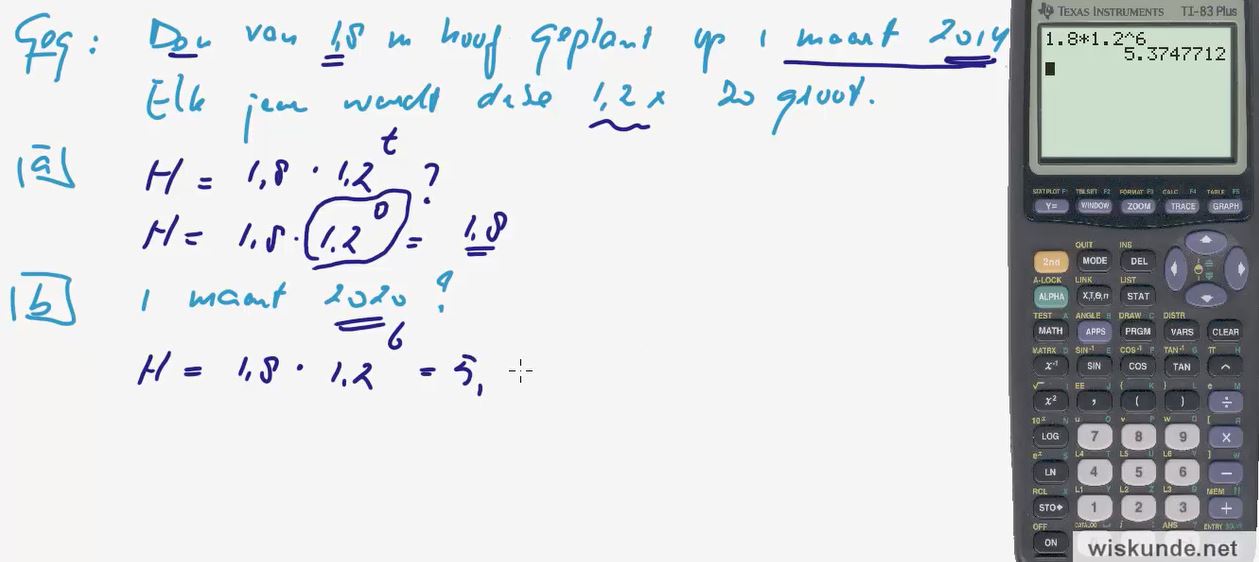 Geg: Den van 1,8 m hoog geplant op 1 maart 2014
Elk jaar wordt deze 1,2 x zo groot.
a H = 1,8 · 1,2^t ?
H = 1,8 · 1,2^0 = 1,8
b 1 maart 2020 ?
H = 1,8 · 1,2^6 = 5,
TEXAS INSTRUMENTS TI-83 Plus
1.8*1.2^6
5.3747712
STAT PLOT F1 TBLSET F2 FORMAT F3 CALC F4 TABLE F5
Y= WINDOW ZOOM TRACE GRAPH
QUIT INS
2nd MODE DEL
A-LOCK LINK LIST
ALPHA X,T,Θ,n STAT
TEST A ANGLE B DRAW C DISTR
MATH APPS PRGM VARS CLEAR
MATRX D SIN⁻¹ E COS⁻¹ F TAN⁻¹ G π H
x⁻¹ SIN COS TAN ^
√ I EE J { K } L e M
x² , ( ) ÷
10ˣ N u O v P w Q [ R
LOG 7 8 9 ×
eˣ S L4 T L5 U L6 V ] W
LN 4 5 6 −
RCL X L1 Y L2 Z L3 θ MEM "
STO▸ 1 2 3 +
OFF CATALOG i ANS ? ENTRY SOLVE
ON
wiskunde.net